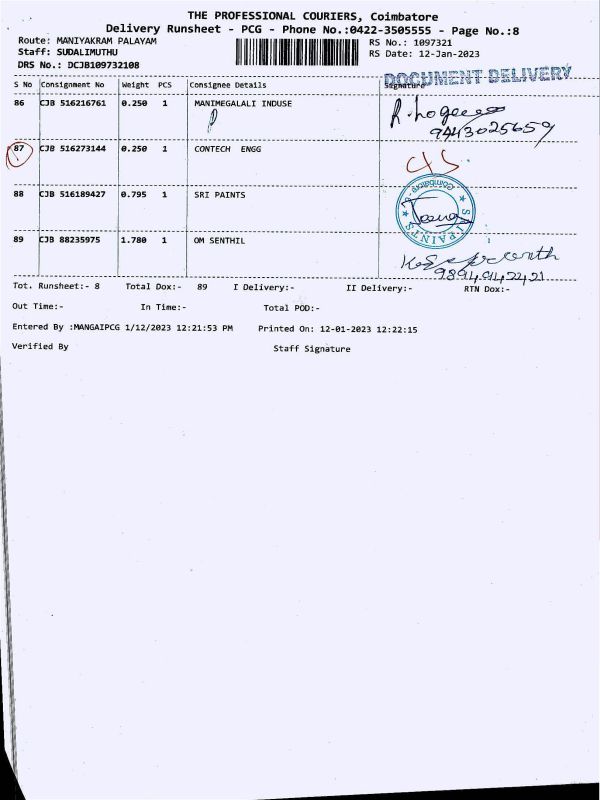 THE PROFESSIONAL COURIERS, Coimbatore
Delivery Runsheet - PCG - Phone No.:0422-3505555 - Page No.:8
Route: MANIYAKRAM PALAYAM
RS No.: 1097321
Staff: SUDALIMUTHU
RS Date: 12-Jan-2023
DRS No.: DCJB109732108
DOCUMENT DELIVERY
S No Consignment No Weight PCS Consignee Details Signature
86 CJB 516216761 0.250 1 MANIMEGALALI INDUSE
9443025659
87 CJB 516273144 0.250 1 CONTECH ENGG
88 CJB 516189427 0.795 1 SRI PAINTS
Coimbatore
SRI PAINTS
89 CJB 88235975 1.780 1 OM SENTHIL
Tot. Runsheet:- 8 Total Dox:- 89 I Delivery:- II Delivery:- RTN Dox:-
Out Time:- In Time:- Total POD:-
Entered By :MANGAIPCG 1/12/2023 12:21:53 PM Printed On: 12-01-2023 12:22:15
Verified By Staff Signature